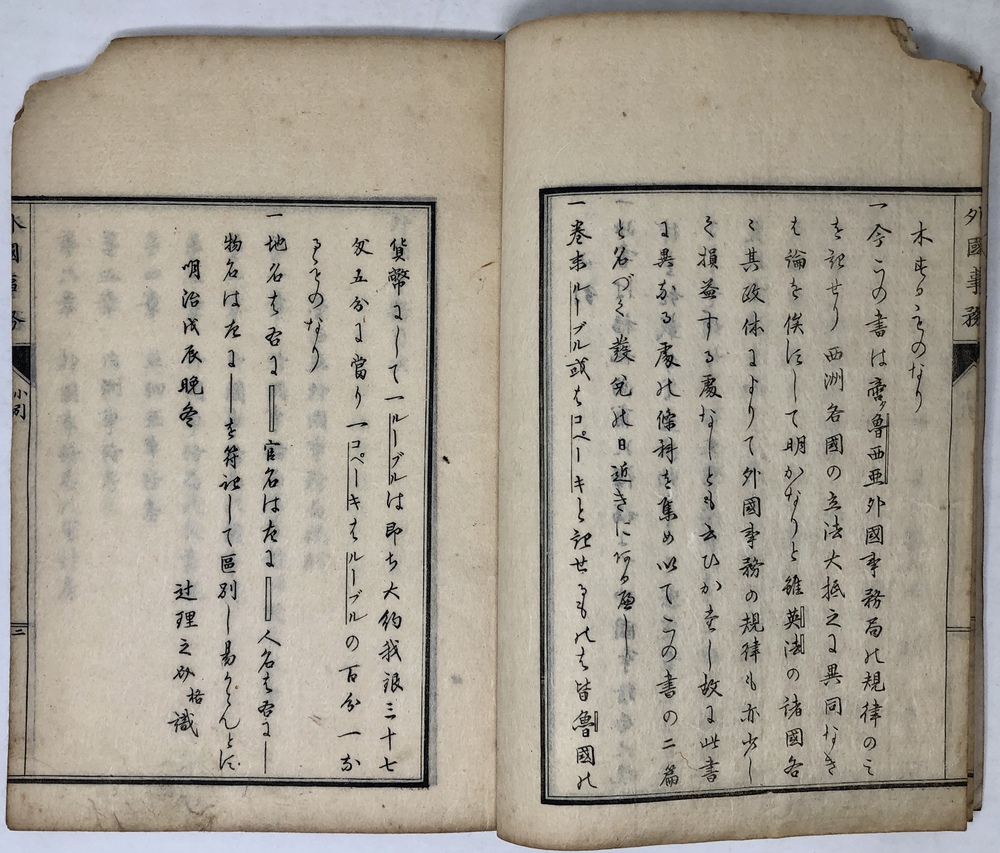 外國事務
木するものなり
一今この書は啻魯西亜外國事務局の規律のミ
を記せり西洲各國の立法大抵之に異同なき
は論を俟ずして明かなりと雖英法の諸國各
〻其政体によりて外國事務の規律も亦少し
く損益する處なしとも云ひかたし故に此書
に異なる處の條科を集め以てこの書の二篇
と名づく發兌の日近きにある應し
一巻末ルーブル或はコペーキと記せるものは皆魯國の
貨幣にして一ルーブルは即ち大約我銀三十七
匁五分に當り一コペーキはルーブルの百分一な
るものなり
一地名は右に 官名は左に 人名は右に
物名は左に を符記して區別し易からんとす
明治戊辰晩冬
辻理之助 格 識
小引
二